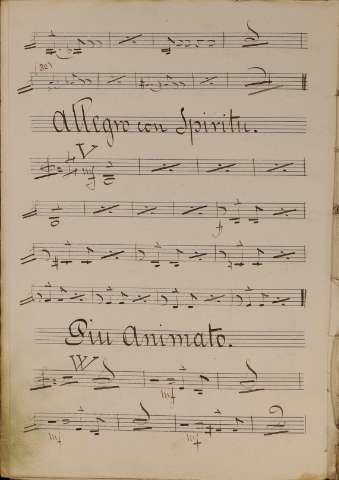 Allegro con Spiritu.
V
mf
f
Piu Animato.
W
mf
mf
mf